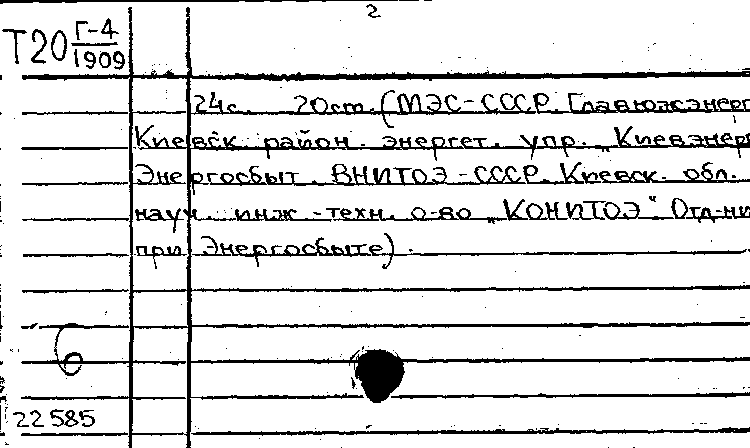 2
Т20 Г-4
1909
24с. 20ст. (МЭС-СССР. Главюжэнерг
Киевск район. энергет. упр. „Киевэнерг
Энергосбыт. ВНИТОЭ-СССР. Киевск. обл.
науч. инж-техн. о-во „КОНИТОЭ“ Отд-ни
при Энергосбыте).
6
22585